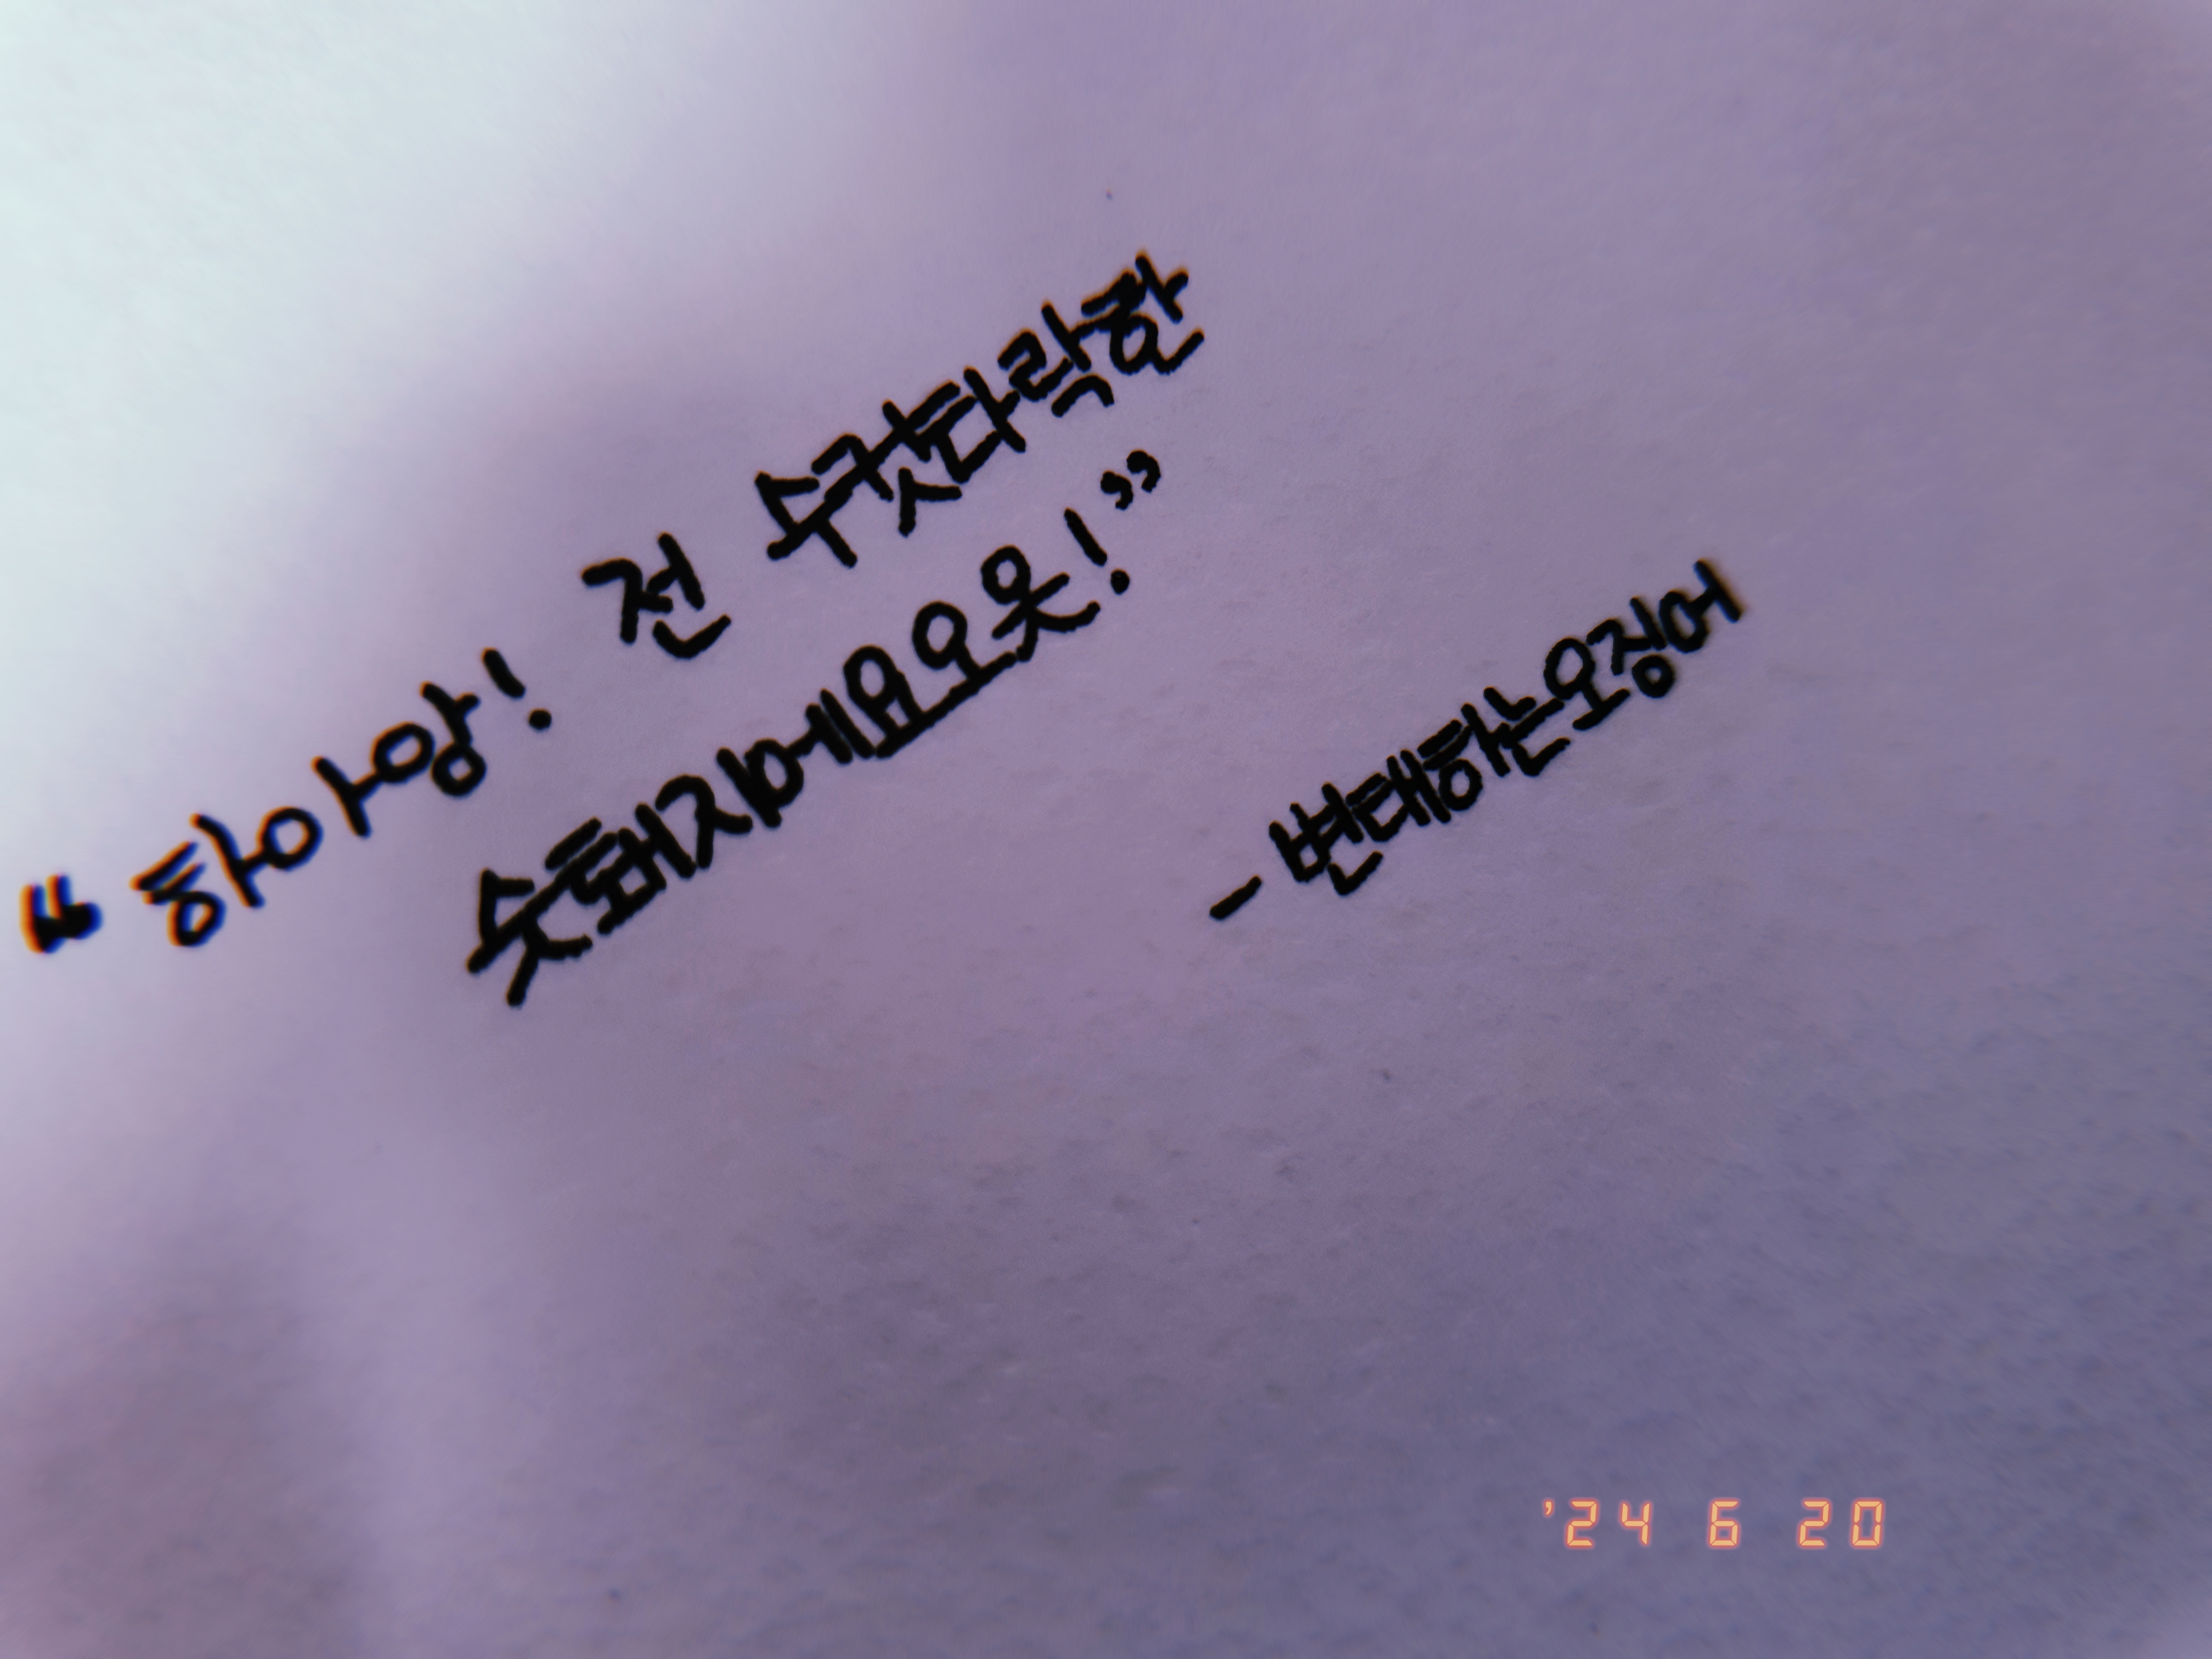 “하아앙! 전 수컷타락한
숫퇘지에요오옷!”
- 변태하는오징어
'24 6 20